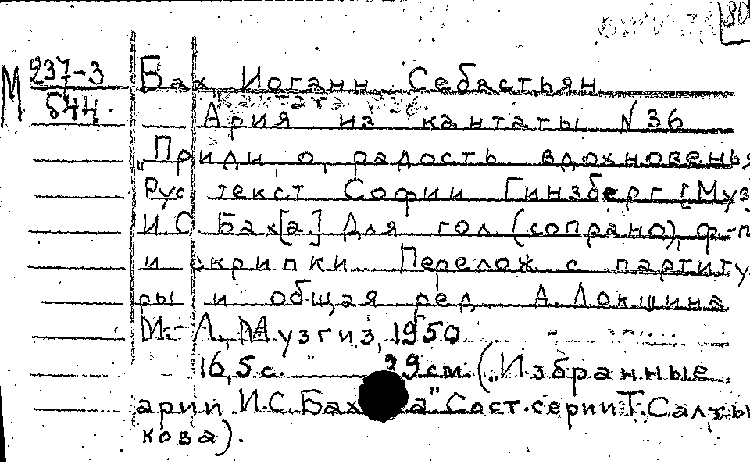 80
М 237-3
544.
Бах, Иоганн Себастьян
Ария из кантаты №36
"Приди о, радость вдохновенья
Рус текст Софии Гинзберг [Муз
И.С. Бах[а] Для гол. (сопрано), ф-п
и скрипки Перелож с партиту
ры и общая ред А. Локшина
М.-Л., Музгиз, 1950
16,5 с. 29 см. ("Избранные
арии И.С. Баха" Сост. серии Т. Салты
кова).